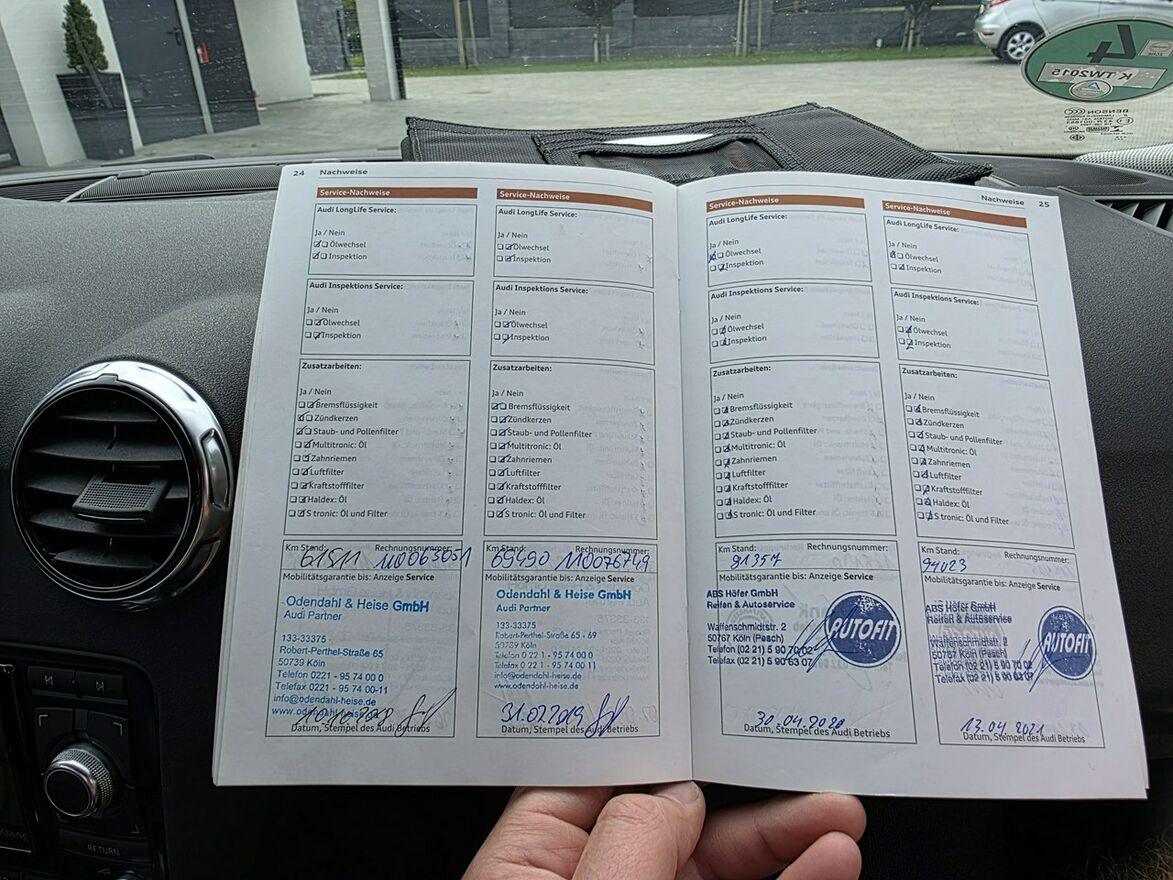 24 Nachweise
Service-Nachweise
Audi LongLife Service:
Ja / Nein
Ölwechsel
Inspektion
Audi Inspektions Service:
Ja / Nein
Ölwechsel
Inspektion
Zusatzarbeiten:
Ja / Nein
Bremsflüssigkeit
Zündkerzen
Staub- und Pollenfilter
Multitronic: Öl
Zahnriemen
Luftfilter
Kraftstofffilter
Haldex: Öl
S tronic: Öl und Filter
Km Stand: Rechnungsnummer:
61511 110063051
Mobilitätsgarantie bis: Anzeige Service
Odendahl & Heise GmbH
Audi Partner
133-33375
Robert-Perthel-Straße 65
50739 Köln
Telefon 0221 - 95 74 00 0
Telefax 0221 - 95 74 00-11
info@odendahl-heise.de
www.odendahl-heise.de
Datum, Stempel des Audi Betriebs
Service-Nachweise
Audi LongLife Service:
Ja / Nein
Ölwechsel
Inspektion
Audi Inspektions Service:
Ja / Nein
Ölwechsel
Inspektion
Zusatzarbeiten:
Ja / Nein
Bremsflüssigkeit
Zündkerzen
Staub- und Pollenfilter
Multitronic: Öl
Zahnriemen
Luftfilter
Kraftstofffilter
Haldex: Öl
S tronic: Öl und Filter
Km Stand: Rechnungsnummer:
69490 110076749
Mobilitätsgarantie bis: Anzeige Service
Odendahl & Heise GmbH
Audi Partner
133-33375
Robert-Perthel-Straße 65 - 69
50739 Köln
Telefon 0 22 1 - 95 74 00 0
Telefax 0 22 1 - 95 74 00 11
info@odendahl-heise.de
www.odendahl-heise.de
31.07.2019
Datum, Stempel des Audi Betriebs
Nachweise 25
Service-Nachweise
Audi LongLife Service:
Ja / Nein
Ölwechsel
Inspektion
Audi Inspektions Service:
Ja / Nein
Ölwechsel
Inspektion
Zusatzarbeiten:
Ja / Nein
Bremsflüssigkeit
Zündkerzen
Staub- und Pollenfilter
Multitronic: Öl
Zahnriemen
Luftfilter
Kraftstofffilter
Haldex: Öl
S tronic: Öl und Filter
Km Stand: Rechnungsnummer:
81357
Mobilitätsgarantie bis: Anzeige Service
ABS Höfer GmbH
Reifen & Autoservice
Waffenschmidtstr. 2
50767 Köln (Pesch)
Telefon (02 21) 5 90 70 02
Telefax (02 21) 5 90 63 07
AUTOFIT
30.04.2020
Datum, Stempel des Audi Betriebs
Service-Nachweise
Audi LongLife Service:
Ja / Nein
Ölwechsel
Inspektion
Audi Inspektions Service:
Ja / Nein
Ölwechsel
Inspektion
Zusatzarbeiten:
Ja / Nein
Bremsflüssigkeit
Zündkerzen
Staub- und Pollenfilter
Multitronic: Öl
Zahnriemen
Luftfilter
Kraftstofffilter
Haldex: Öl
S tronic: Öl und Filter
Km Stand: Rechnungsnummer:
94023
Mobilitätsgarantie bis: Anzeige Service
ABS Höfer GmbH
Reifen & Autoservice
Waffenschmidtstr. 2
50767 Köln (Pesch)
Telefon (02 21) 5 90 70 02
Telefax (02 21) 5 90 63 07
AUTOFIT
13.04.2021
Datum, Stempel des Audi Betriebs
4
K TW2015
BENSON
RETURN